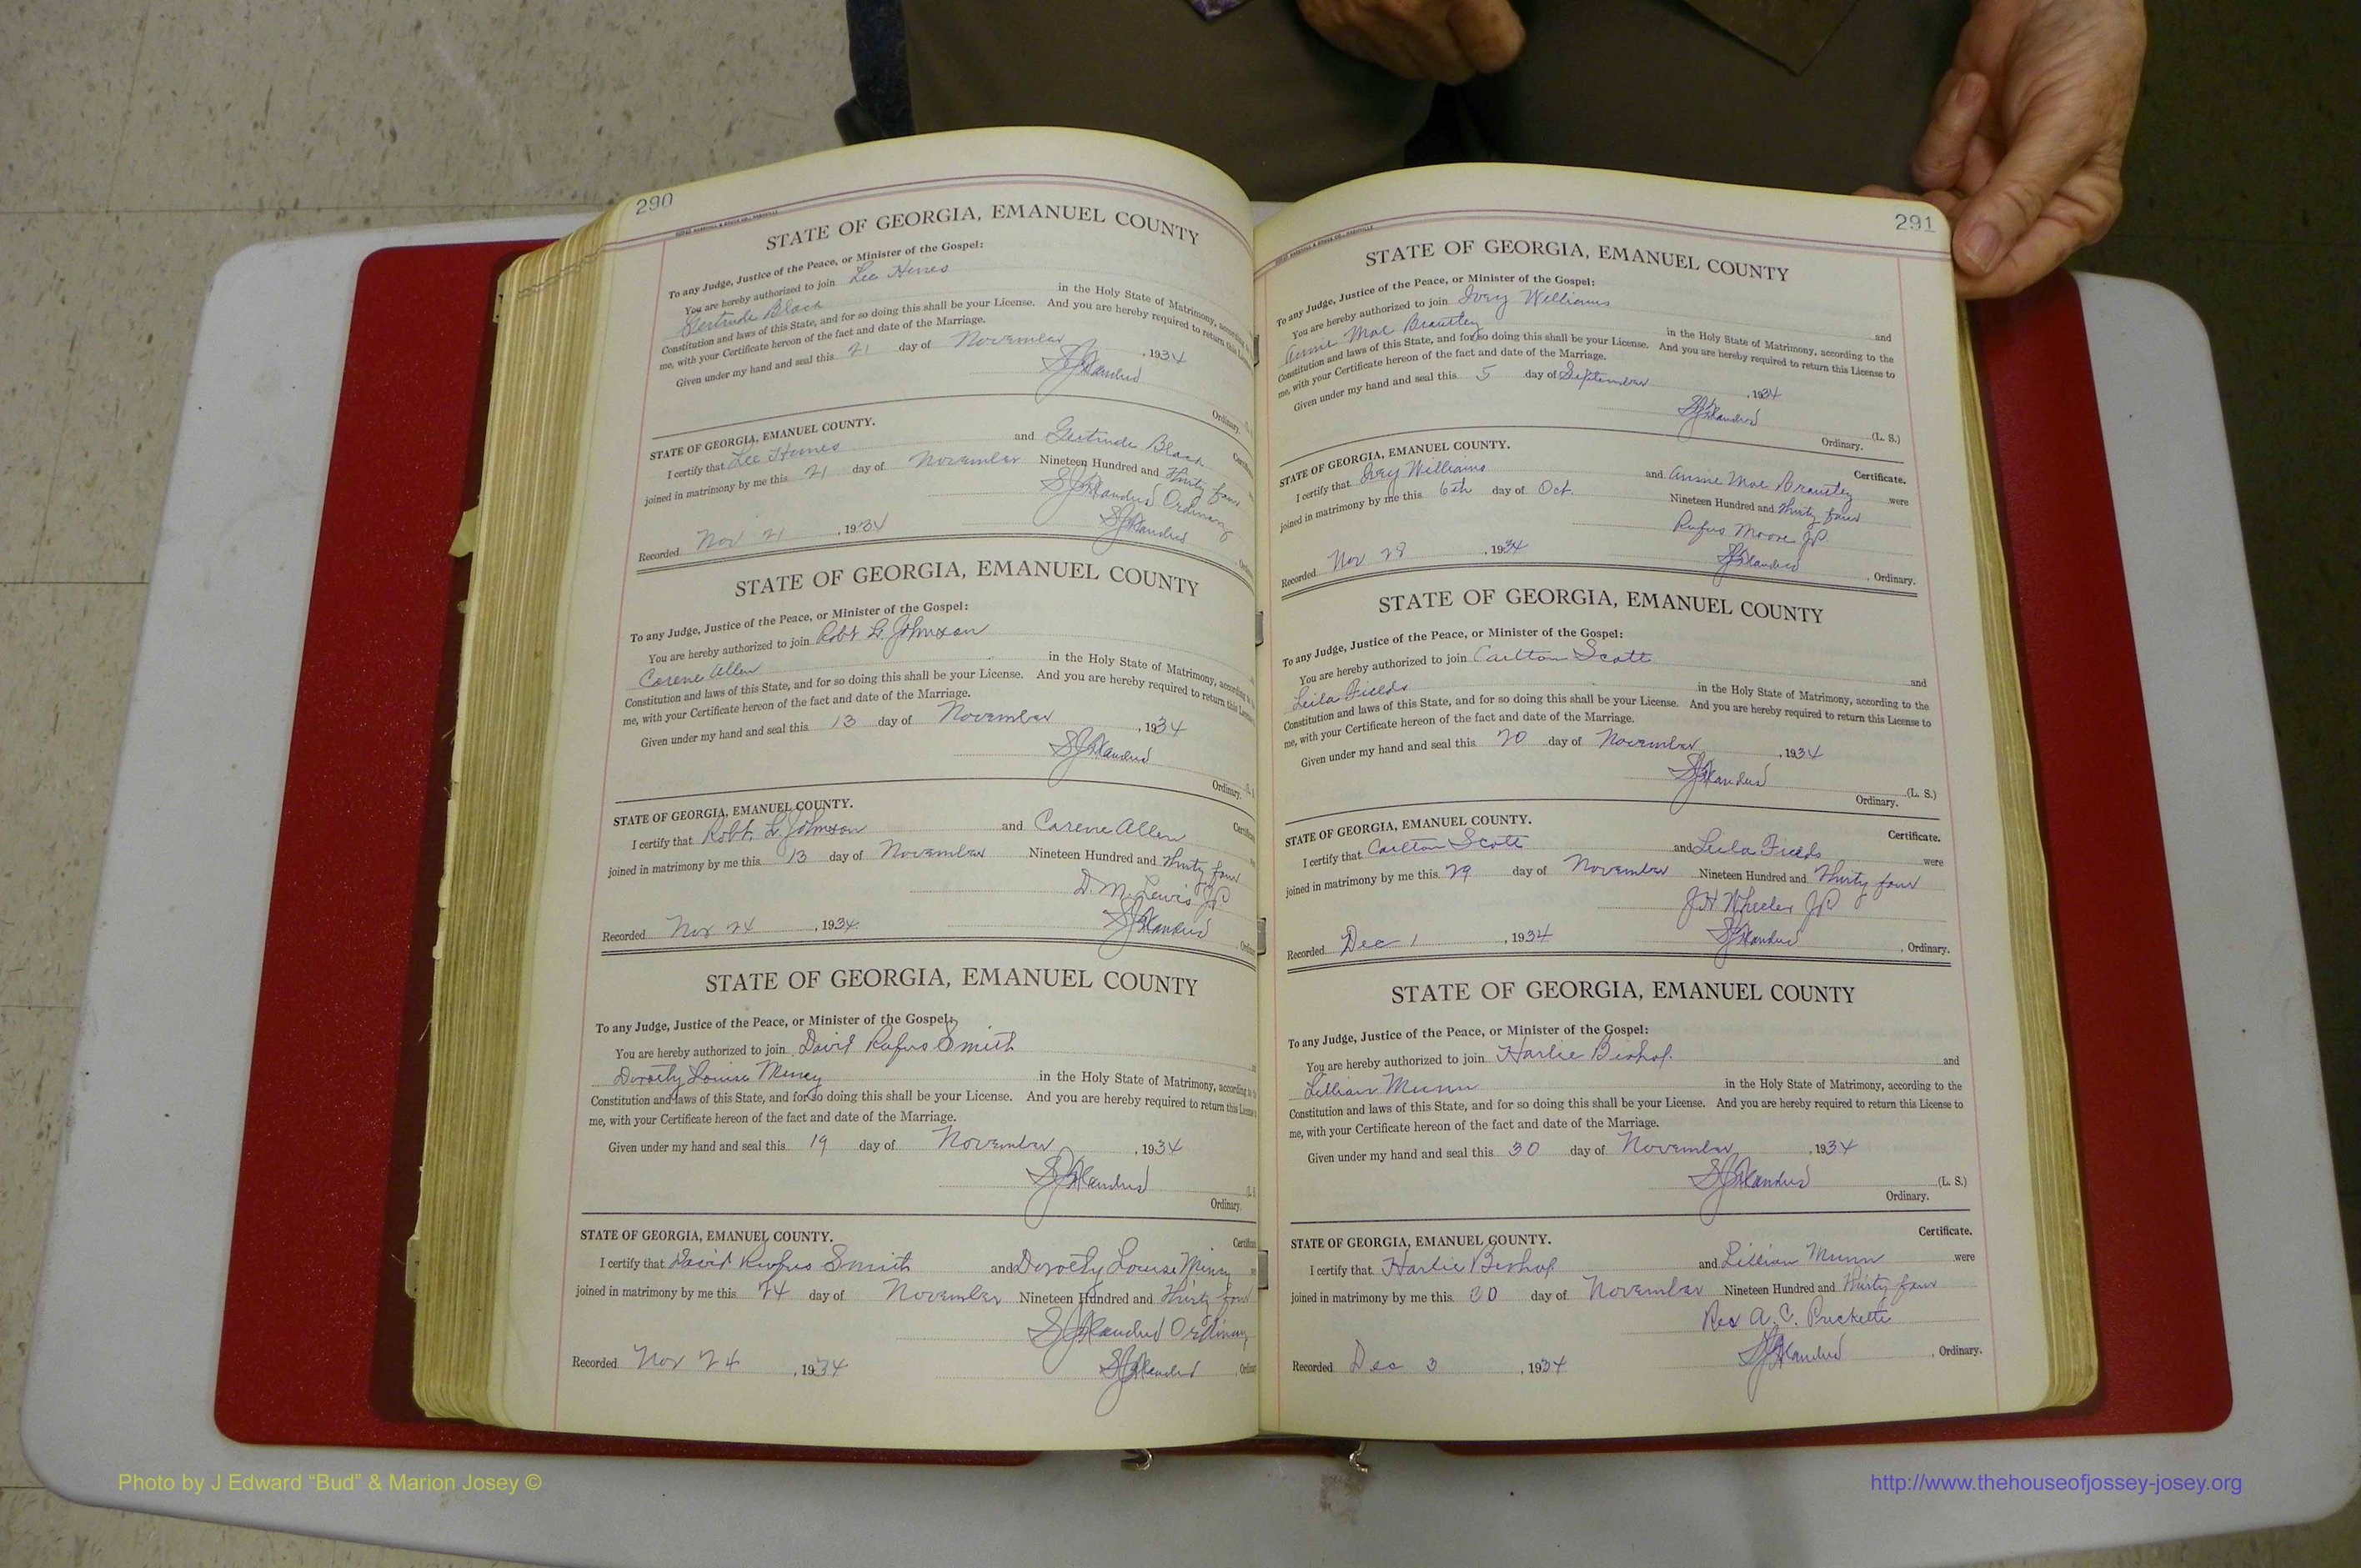 290
STATE OF GEORGIA, EMANUEL COUNTY
To any Judge, Justice of the Peace, or Minister of the Gospel:
You are hereby authorized to join Lee
Gertrude Black in the Holy State of Matrimony, according
Constitution and laws of this State, and for so doing this shall be your License. And you are hereby required to return this
me, with your Certificate hereon of the fact and date of the Marriage.
Given under my hand and seal this 21 day of November, 1934
Ordinary.
STATE OF GEORGIA, EMANUEL COUNTY.
I certify that Lee and Gertrude Black
joined in matrimony by me this 21 day of November Nineteen Hundred and Thirty four
Ordinary
Recorded Nov 21, 1934
STATE OF GEORGIA, EMANUEL COUNTY
To any Judge, Justice of the Peace, or Minister of the Gospel:
You are hereby authorized to join Robt L. Johnson
Carene Allen in the Holy State of Matrimony, according to
Constitution and laws of this State, and for so doing this shall be your License. And you are hereby required to return this License
me, with your Certificate hereon of the fact and date of the Marriage.
Given under my hand and seal this 13 day of November, 1934
Ordinary.
STATE OF GEORGIA, EMANUEL COUNTY.
I certify that Robt. L. Johnson and Carene Allen
joined in matrimony by me this 13 day of November Nineteen Hundred and Thirty four
D. M. Lewis J.P.
Recorded Nov 24, 1934
STATE OF GEORGIA, EMANUEL COUNTY
To any Judge, Justice of the Peace, or Minister of the Gospel:
You are hereby authorized to join David Rufus Smith
Dorothy Louise Mincy in the Holy State of Matrimony, according to
Constitution and laws of this State, and for so doing this shall be your License. And you are hereby required to return this License
me, with your Certificate hereon of the fact and date of the Marriage.
Given under my hand and seal this 19 day of November, 1934
Ordinary.
STATE OF GEORGIA, EMANUEL COUNTY.
I certify that David Rufus Smith and Dorothy Louise Mincy
joined in matrimony by me this 24 day of November Nineteen Hundred and Thirty four
Ordinary
Recorded Nov 24, 1934
291
STATE OF GEORGIA, EMANUEL COUNTY
To any Judge, Justice of the Peace, or Minister of the Gospel:
You are hereby authorized to join Ivey Williams and
Annie Mae Brantley in the Holy State of Matrimony, according to the
Constitution and laws of this State, and for so doing this shall be your License. And you are hereby required to return this License to
me, with your Certificate hereon of the fact and date of the Marriage.
Given under my hand and seal this 5 day of September, 1934
(L. S.)
Ordinary.
STATE OF GEORGIA, EMANUEL COUNTY. Certificate.
I certify that Ivey Williams and Annie Mae Brantley were
joined in matrimony by me this 6th day of Oct. Nineteen Hundred and Thirty four
Rufus Moore J.P.
Recorded Nov 28, 1934 , Ordinary.
STATE OF GEORGIA, EMANUEL COUNTY
To any Judge, Justice of the Peace, or Minister of the Gospel:
You are hereby authorized to join Carlton Scott and
Leila Fields in the Holy State of Matrimony, according to the
Constitution and laws of this State, and for so doing this shall be your License. And you are hereby required to return this License to
me, with your Certificate hereon of the fact and date of the Marriage.
Given under my hand and seal this 20 day of November, 1934
(L. S.)
Ordinary.
STATE OF GEORGIA, EMANUEL COUNTY. Certificate.
I certify that Carlton Scott and Leila Fields were
joined in matrimony by me this 29 day of November Nineteen Hundred and Thirty four
J H Wheeler J.P.
Recorded Dec 1, 1934 , Ordinary.
STATE OF GEORGIA, EMANUEL COUNTY
To any Judge, Justice of the Peace, or Minister of the Gospel:
You are hereby authorized to join Harlie Bishop and
Lillian Munn in the Holy State of Matrimony, according to the
Constitution and laws of this State, and for so doing this shall be your License. And you are hereby required to return this License to
me, with your Certificate hereon of the fact and date of the Marriage.
Given under my hand and seal this 30 day of November, 1934
(L. S.)
Ordinary.
STATE OF GEORGIA, EMANUEL COUNTY. Certificate.
I certify that Harlie Bishop and Lillian Munn were
joined in matrimony by me this 30 day of November Nineteen Hundred and Thirty four
Rev A. C. Prickett
Recorded Dec 3, 1934 , Ordinary.
Photo by J Edward “Bud” & Marion Josey ©
http://www.thehouseofjossey-josey.org